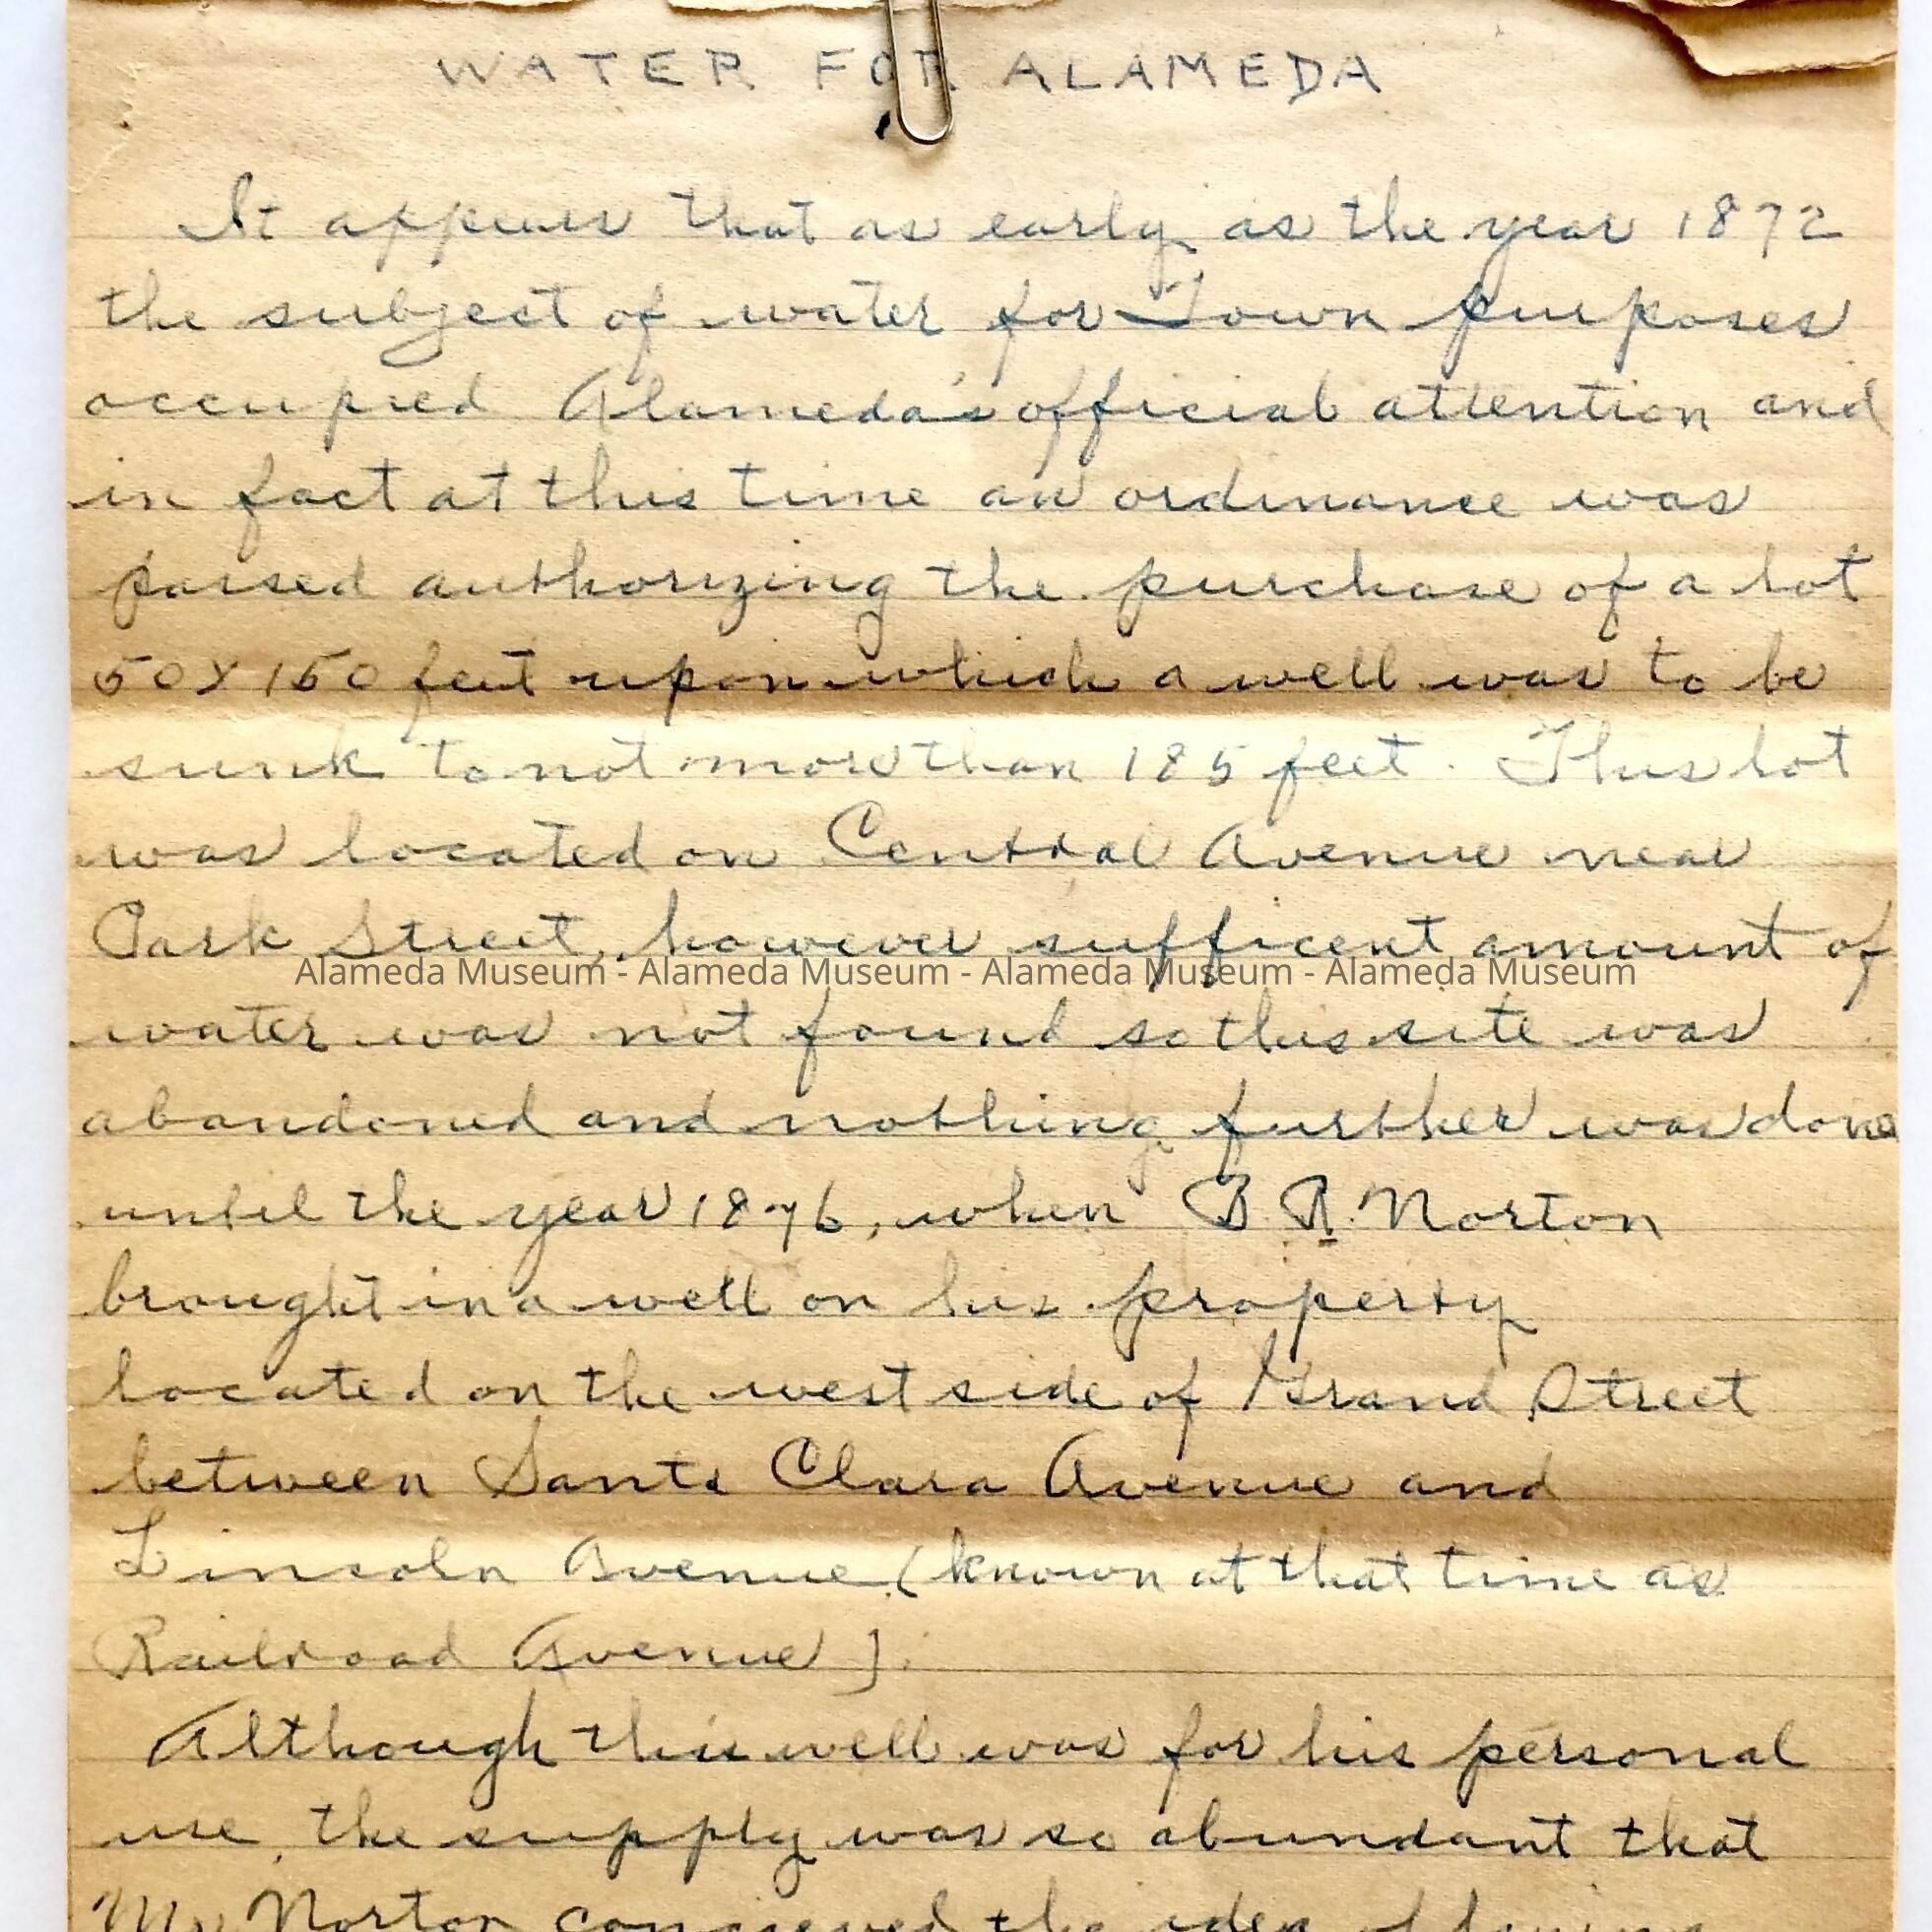 WATER FOR ALAMEDA
It appears that as early as the year 1872
the subject of water for Town purposes
occupied Alameda's official attention and
in fact at this time an ordinance was
passed authorizing the purchase of a lot
50X150 feet upon which a well was to be
sunk to not more than 185 feet. This lot
was located on Central Avenue near
Park Street, however sufficent amount of
Alameda Museum - Alameda Museum - Alameda Museum - Alameda Museum
water was not found so this site was
abandoned and nothing further was done
until the year 1876, when B. R. Norton
brought in a well on his property
located on the west side of Grand Street
between Santa Clara Avenue and
Lincoln Avenue (known at that time as
Railroad Avenue).
Although this well was for his personal
use, the supply was so abundant that
Mr Norton conceived the idea of